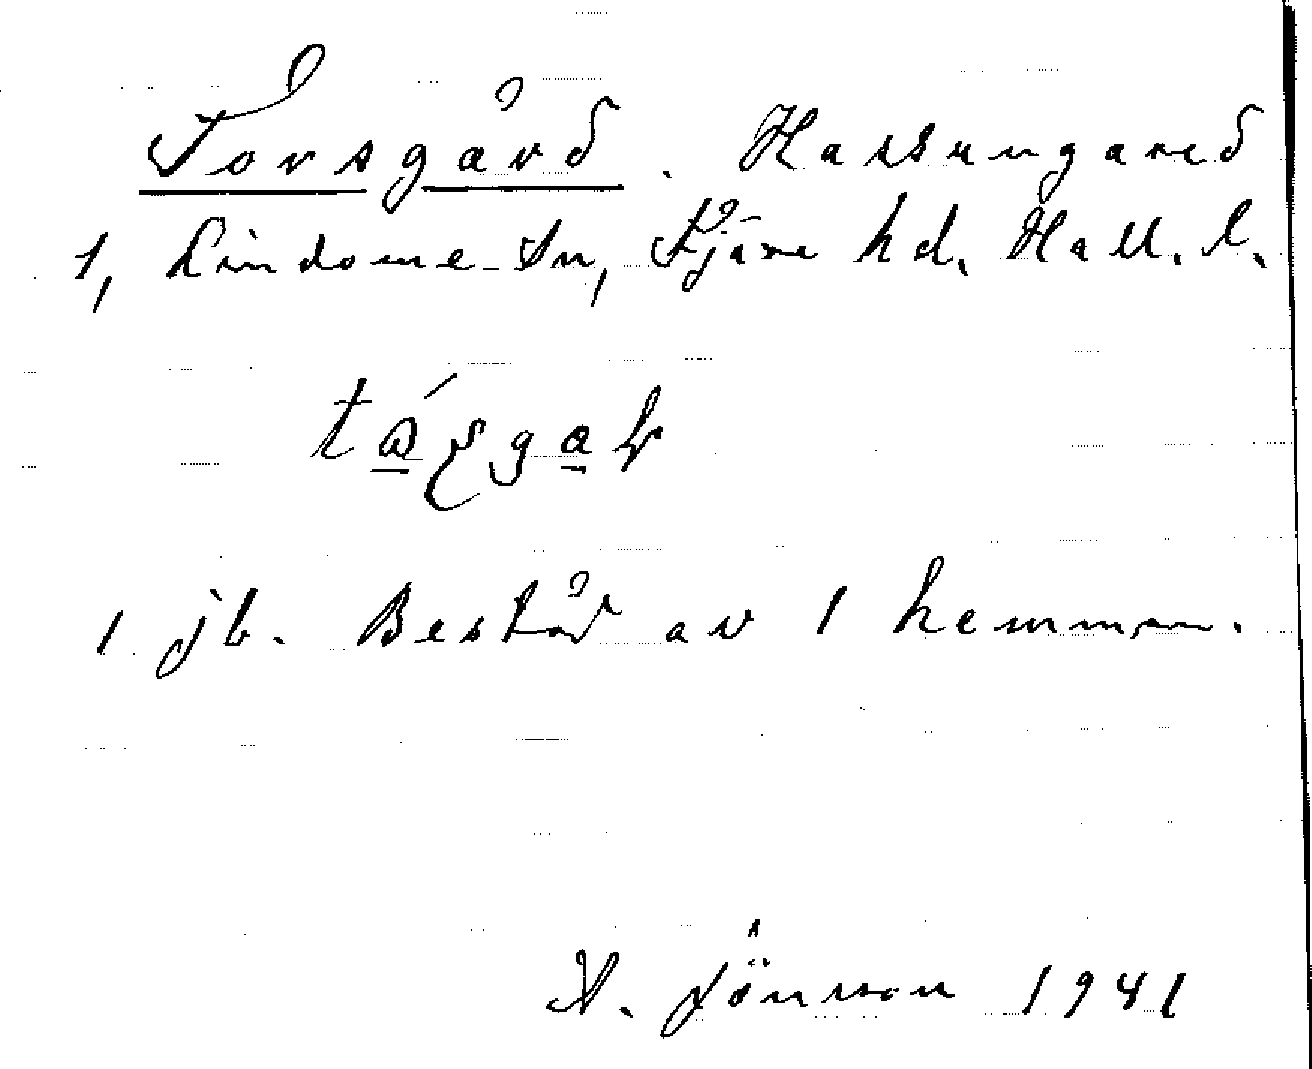 Torsgård. Hassungared
1, Lindome Sn, Fjäre hd. Hall. l.
1 jb. Består av 1 hemman.
Jönsson 1941